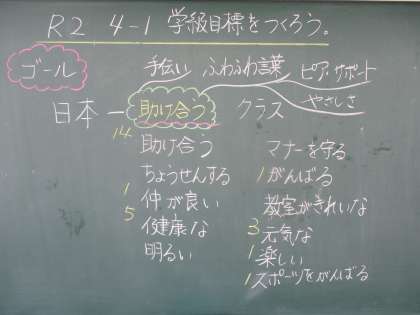 R2 4-1 学級目標をつくろう。
ゴール
手伝い ふわふわ言葉 ピア・サポート
やさしさ
日本一 助け合う クラス
14 助け合う
ちょうせんする
1 仲が良い
5 健康な
明るい
マナーを守る
1 がんばる
教室がきれいな
3 元気な
1 楽しい
1 スポーツをがんばる